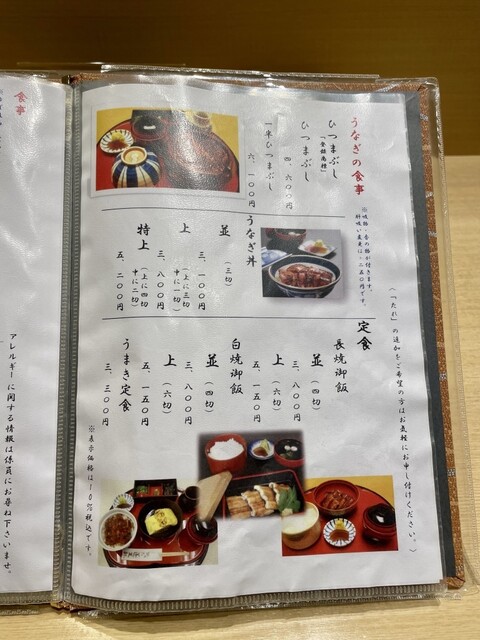 うなぎの食事
※吸物・香の物が付きます。
肝吸い変更は+250円です。
ひつまぶし
「登録商標」
ひつまぶし
四、六〇〇円
一半ひつまぶし
六、一〇〇円
うなぎ丼
並
(三切)
三、一〇〇円
上
(上に三切
中に一切)
三、八〇〇円
特上
(上に四切
中に二切)
五、二〇〇円
(「たれ」の追加をご希望の方はお気軽にお申し付けください。)
定食
長焼御飯
並
(四切)
三、八〇〇円
上
(六切)
五、一五〇円
白焼御飯
並
(四切)
三、八〇〇円
上
(六切)
五、一五〇円
うまき定食
三、三〇〇円
※表示価格は10%税込です。
食事
アレルギーに関する情報は係員にお尋ね下さいませ。